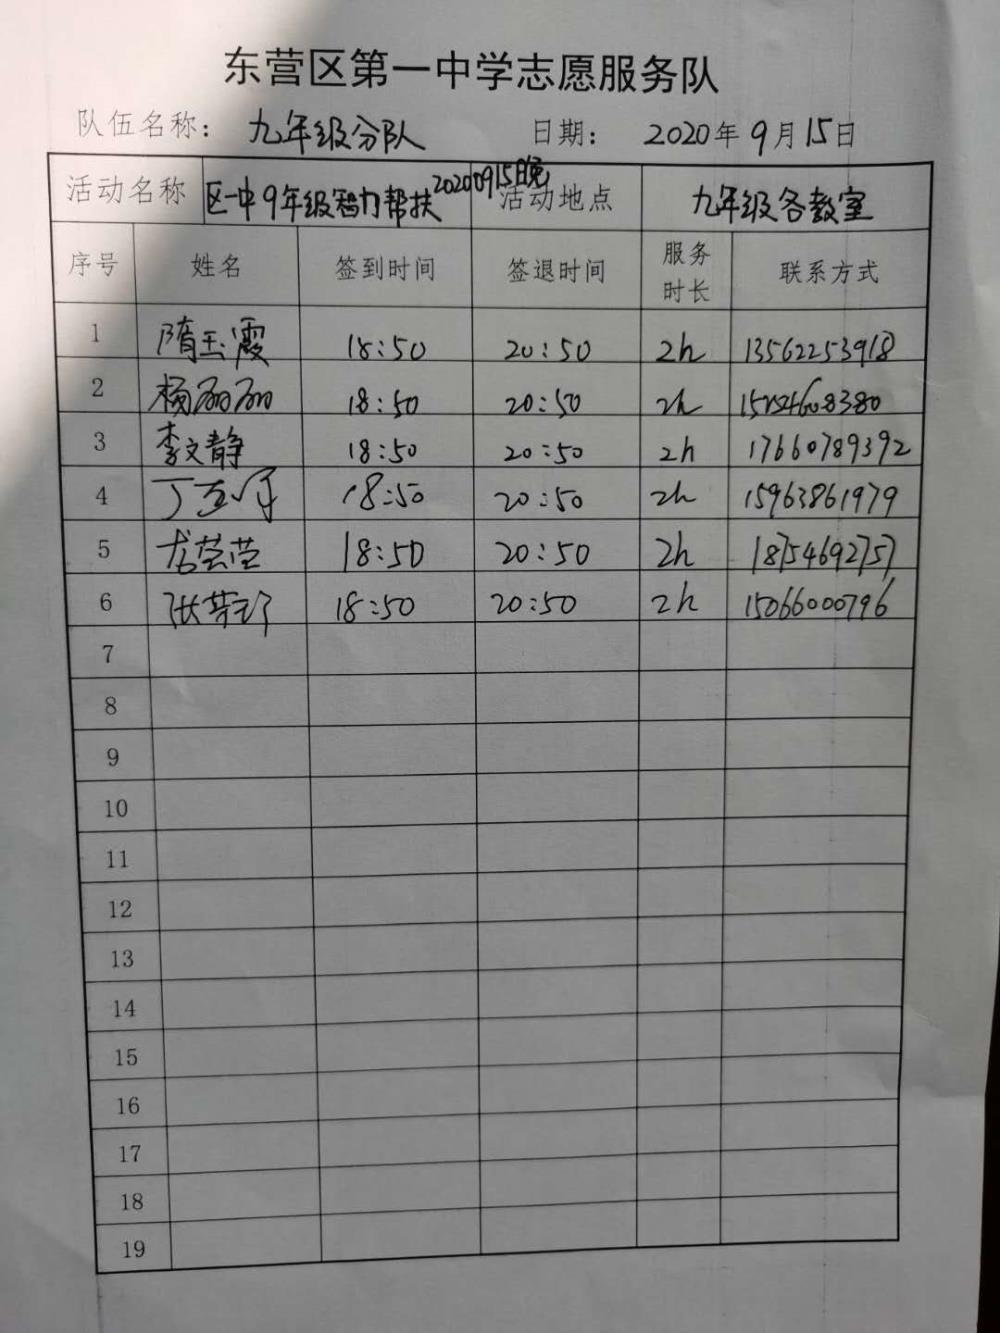 东营区第一中学志愿服务队
队伍名称： 九年级分队 日期： 2020年9月15日
活动名称 区一中9年级智力帮扶20200915晚 活动地点 九年级各教室
序号 姓名 签到时间 签退时间 服务时长 联系方式
1 隋玉霞 18:50 20:50 2h 13562253918
2 杨丽丽 18:50 20:50 2h
3 李文静 18:50 20:50 2h 17660789392
4 18:50 20:50 2h 15963861979
5 尤芸芸 18:50 20:50 2h 18754692757
6 18:50 20:50 2h 15066000796
7
8
9
10
11
12
13
14
15
16
17
18
19